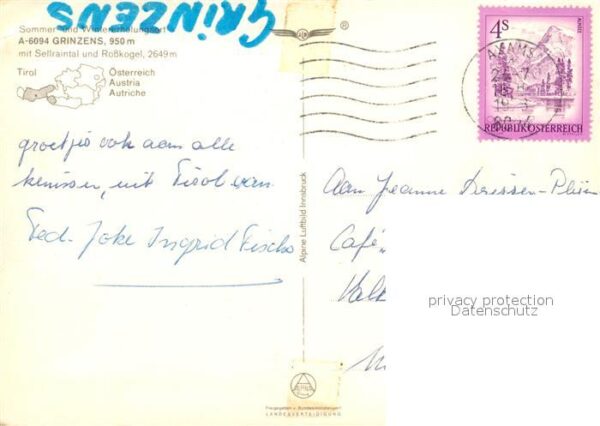 GRINZENS
Sommer- und Wintererholungsort
A-6094 GRINZENS, 950 m
mit Sellraintal und Roßkogel, 2649 m
Tirol
Österreich
Austria
Autriche
groetjes ook aan alle
kennissen, uit Tirol van
Ted. Joke Ingrid
Alpine Luftbild Innsbruck
4S
REPUBLIK ÖSTERREICH
AXAMS
Aan Jeanne
Café
privacy protection
Datenschutz
Freigegeben v. Bundesministerium f.
LANDESVERTEIDIGUNG